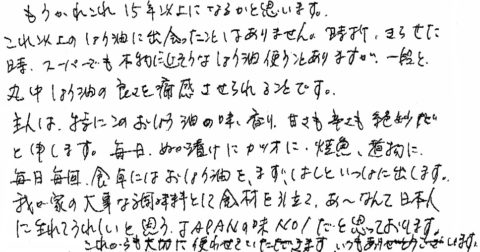 もうかれこれ15年以上になるかと思います。
これ以上のしょう油に出会ったことはありません。時折、きらせた
時、スーパーでも本物に近そうなしょう油使うことありますが、一段と
丸中しょう油の良さを痛感させられることです。
主人は、特にこのおしょう油の味、香り、甘さも辛さも絶妙だ
と申します。毎日、ぬか漬けにカツオに、焼魚、煮物に
毎日毎回、食卓にはおしょう油を、まずはしといっしょに出します。
我が家の大事な調味料として食材を引立て、あ〜なんて日本人
に生れてうれしいと思う、JAPANの味NO1だと思っております。
これからも大切に使わせていただきます いつもありがとうございます。